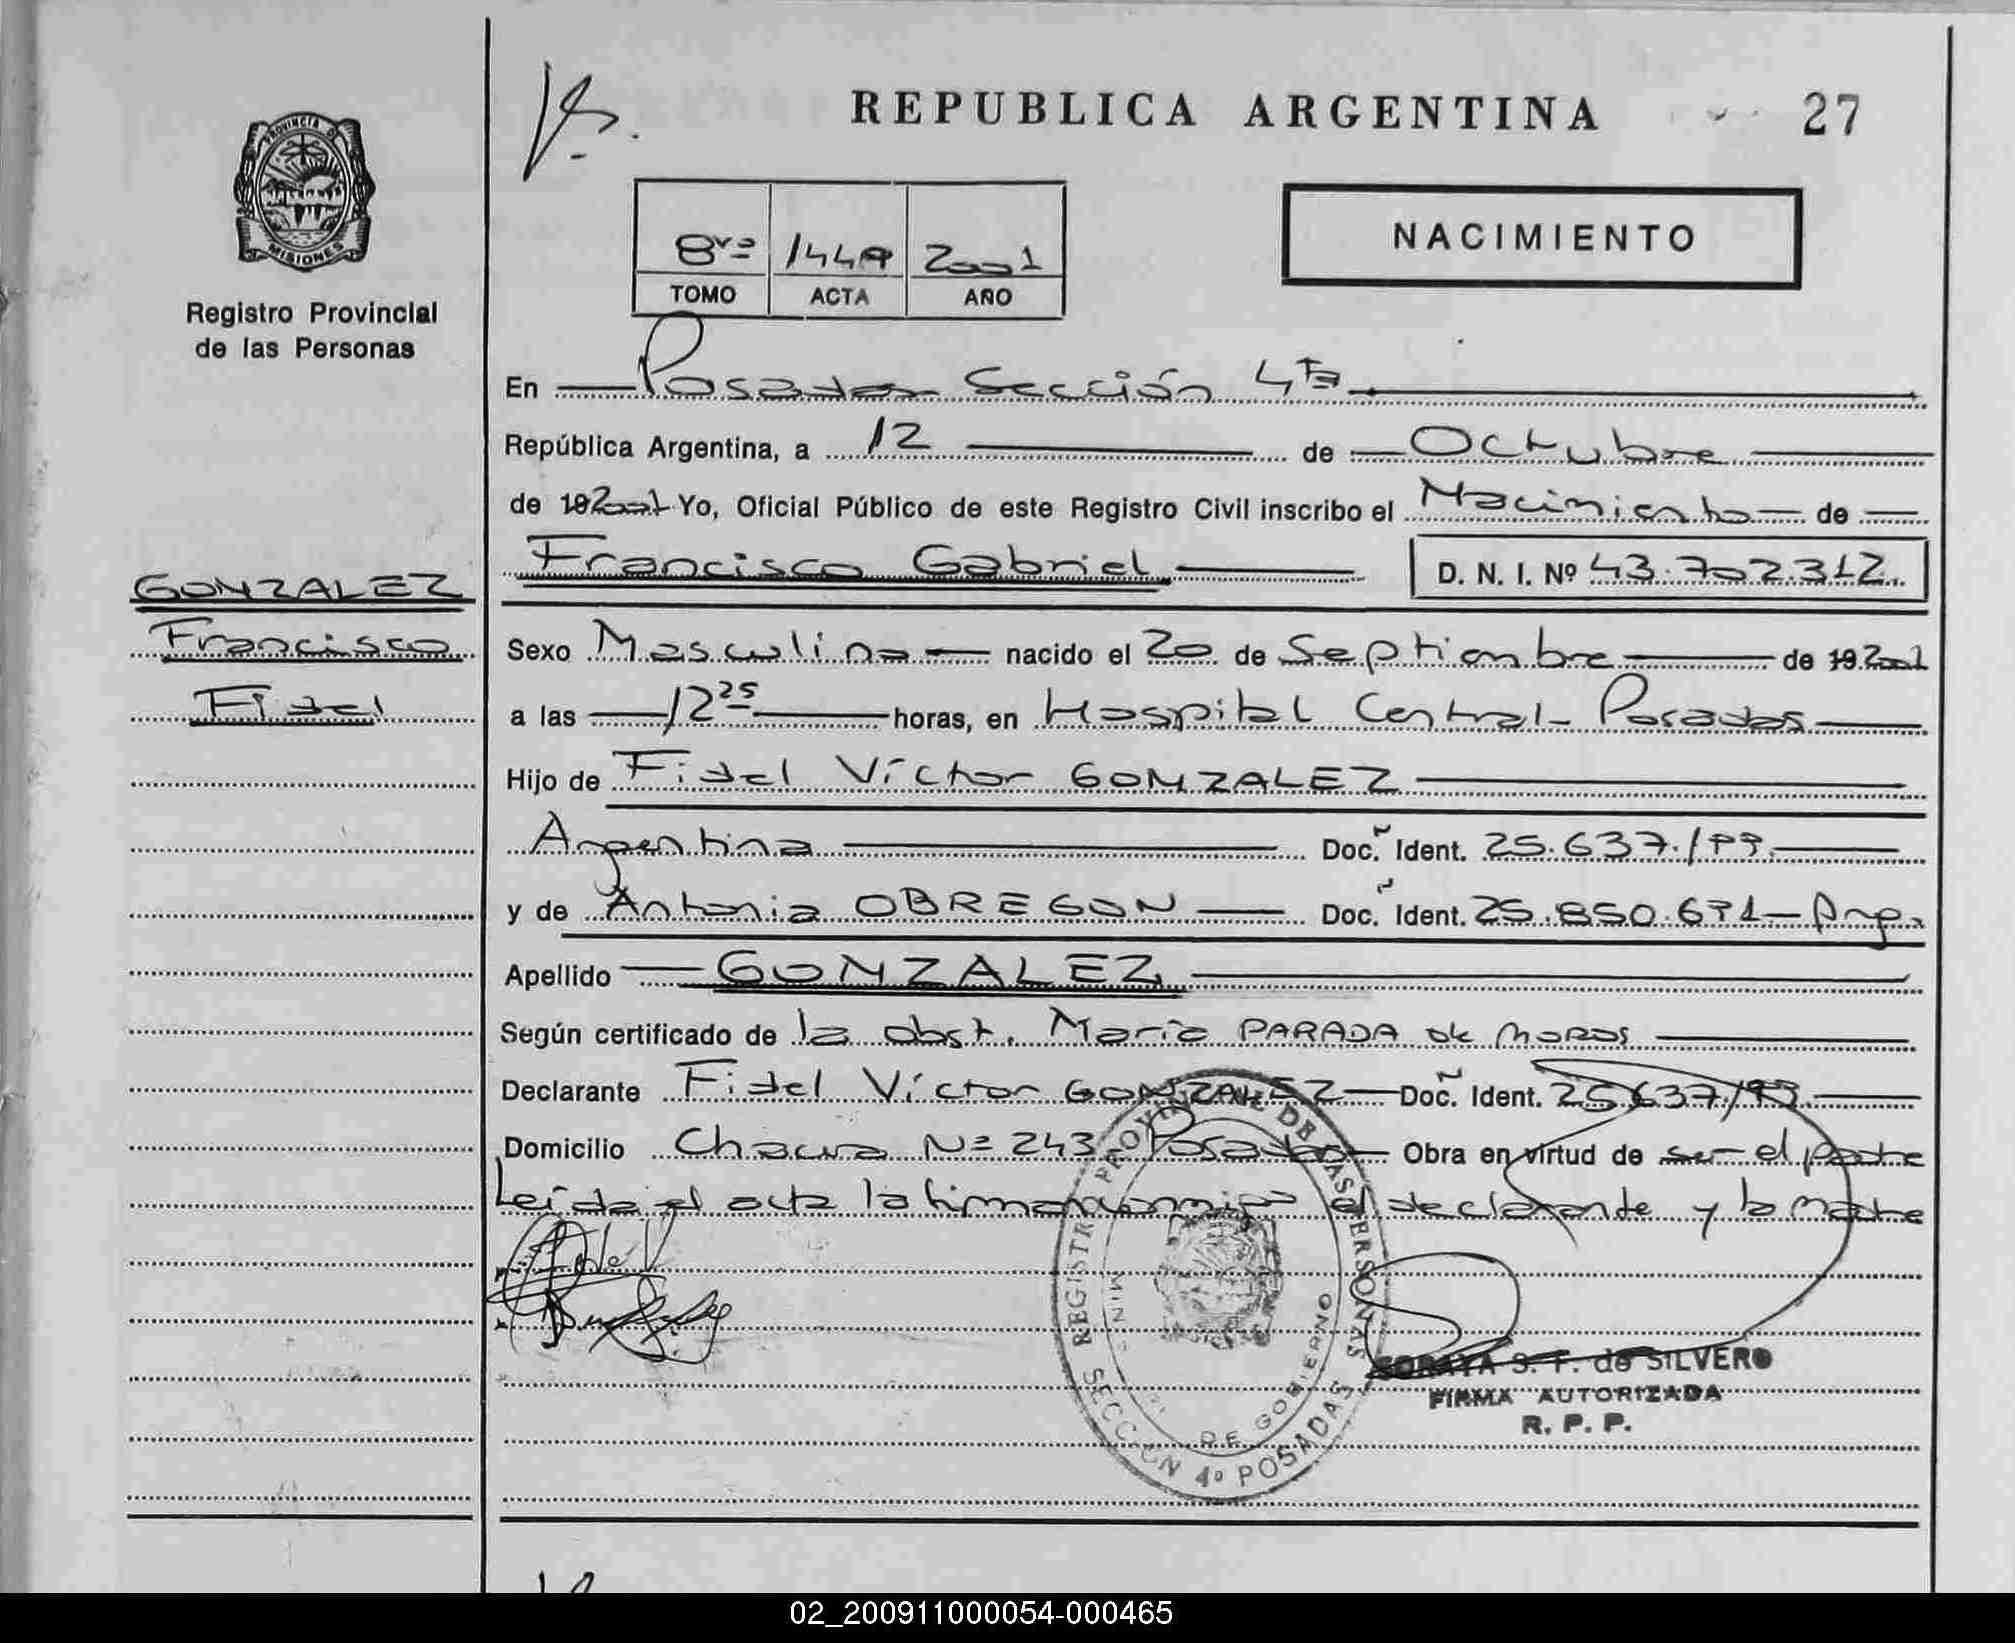 PROVINCIA DE
MISIONES
Registro Provincial
de las Personas
GONZALEZ
Francisco
Fidel
REPUBLICA ARGENTINA 27
8vo 1449 2001
TOMO ACTA AÑO
NACIMIENTO
En Posadas Sección 4ta
República Argentina, a 12 de Octubre
de 19 2001 Yo, Oficial Público de este Registro Civil inscribo el Nacimiento de
Francisco Gabriel D. N. I. Nº 43.702.312
Sexo Masculino nacido el 20 de Septiembre de 19 2001
a las 12 25 horas, en Hospital Central - Posadas
Hijo de Fidel Víctor GONZALEZ
Argentina Doc. Ident. 25.637.199
y de Antonia OBREGON Doc. Ident. 25.850.671 - Arg.
Apellido GONZALEZ
Según certificado de la obst. María PARADA de MOROS
Declarante Fidel Víctor GONZALEZ Doc. Ident. 25637199
Domicilio Chacra Nº 243 Posadas Obra en virtud de ser el padre
Leída el acta la firman conmigo el declarante y la madre
REGISTRO PROVINCIAL DE LAS PERSONAS
DE GOBIERNO
SECCION 4º POSADAS
SORAYA S. F. de SILVERO
FIRMA AUTORIZADA
R. P. P.
02_200911000054-000465